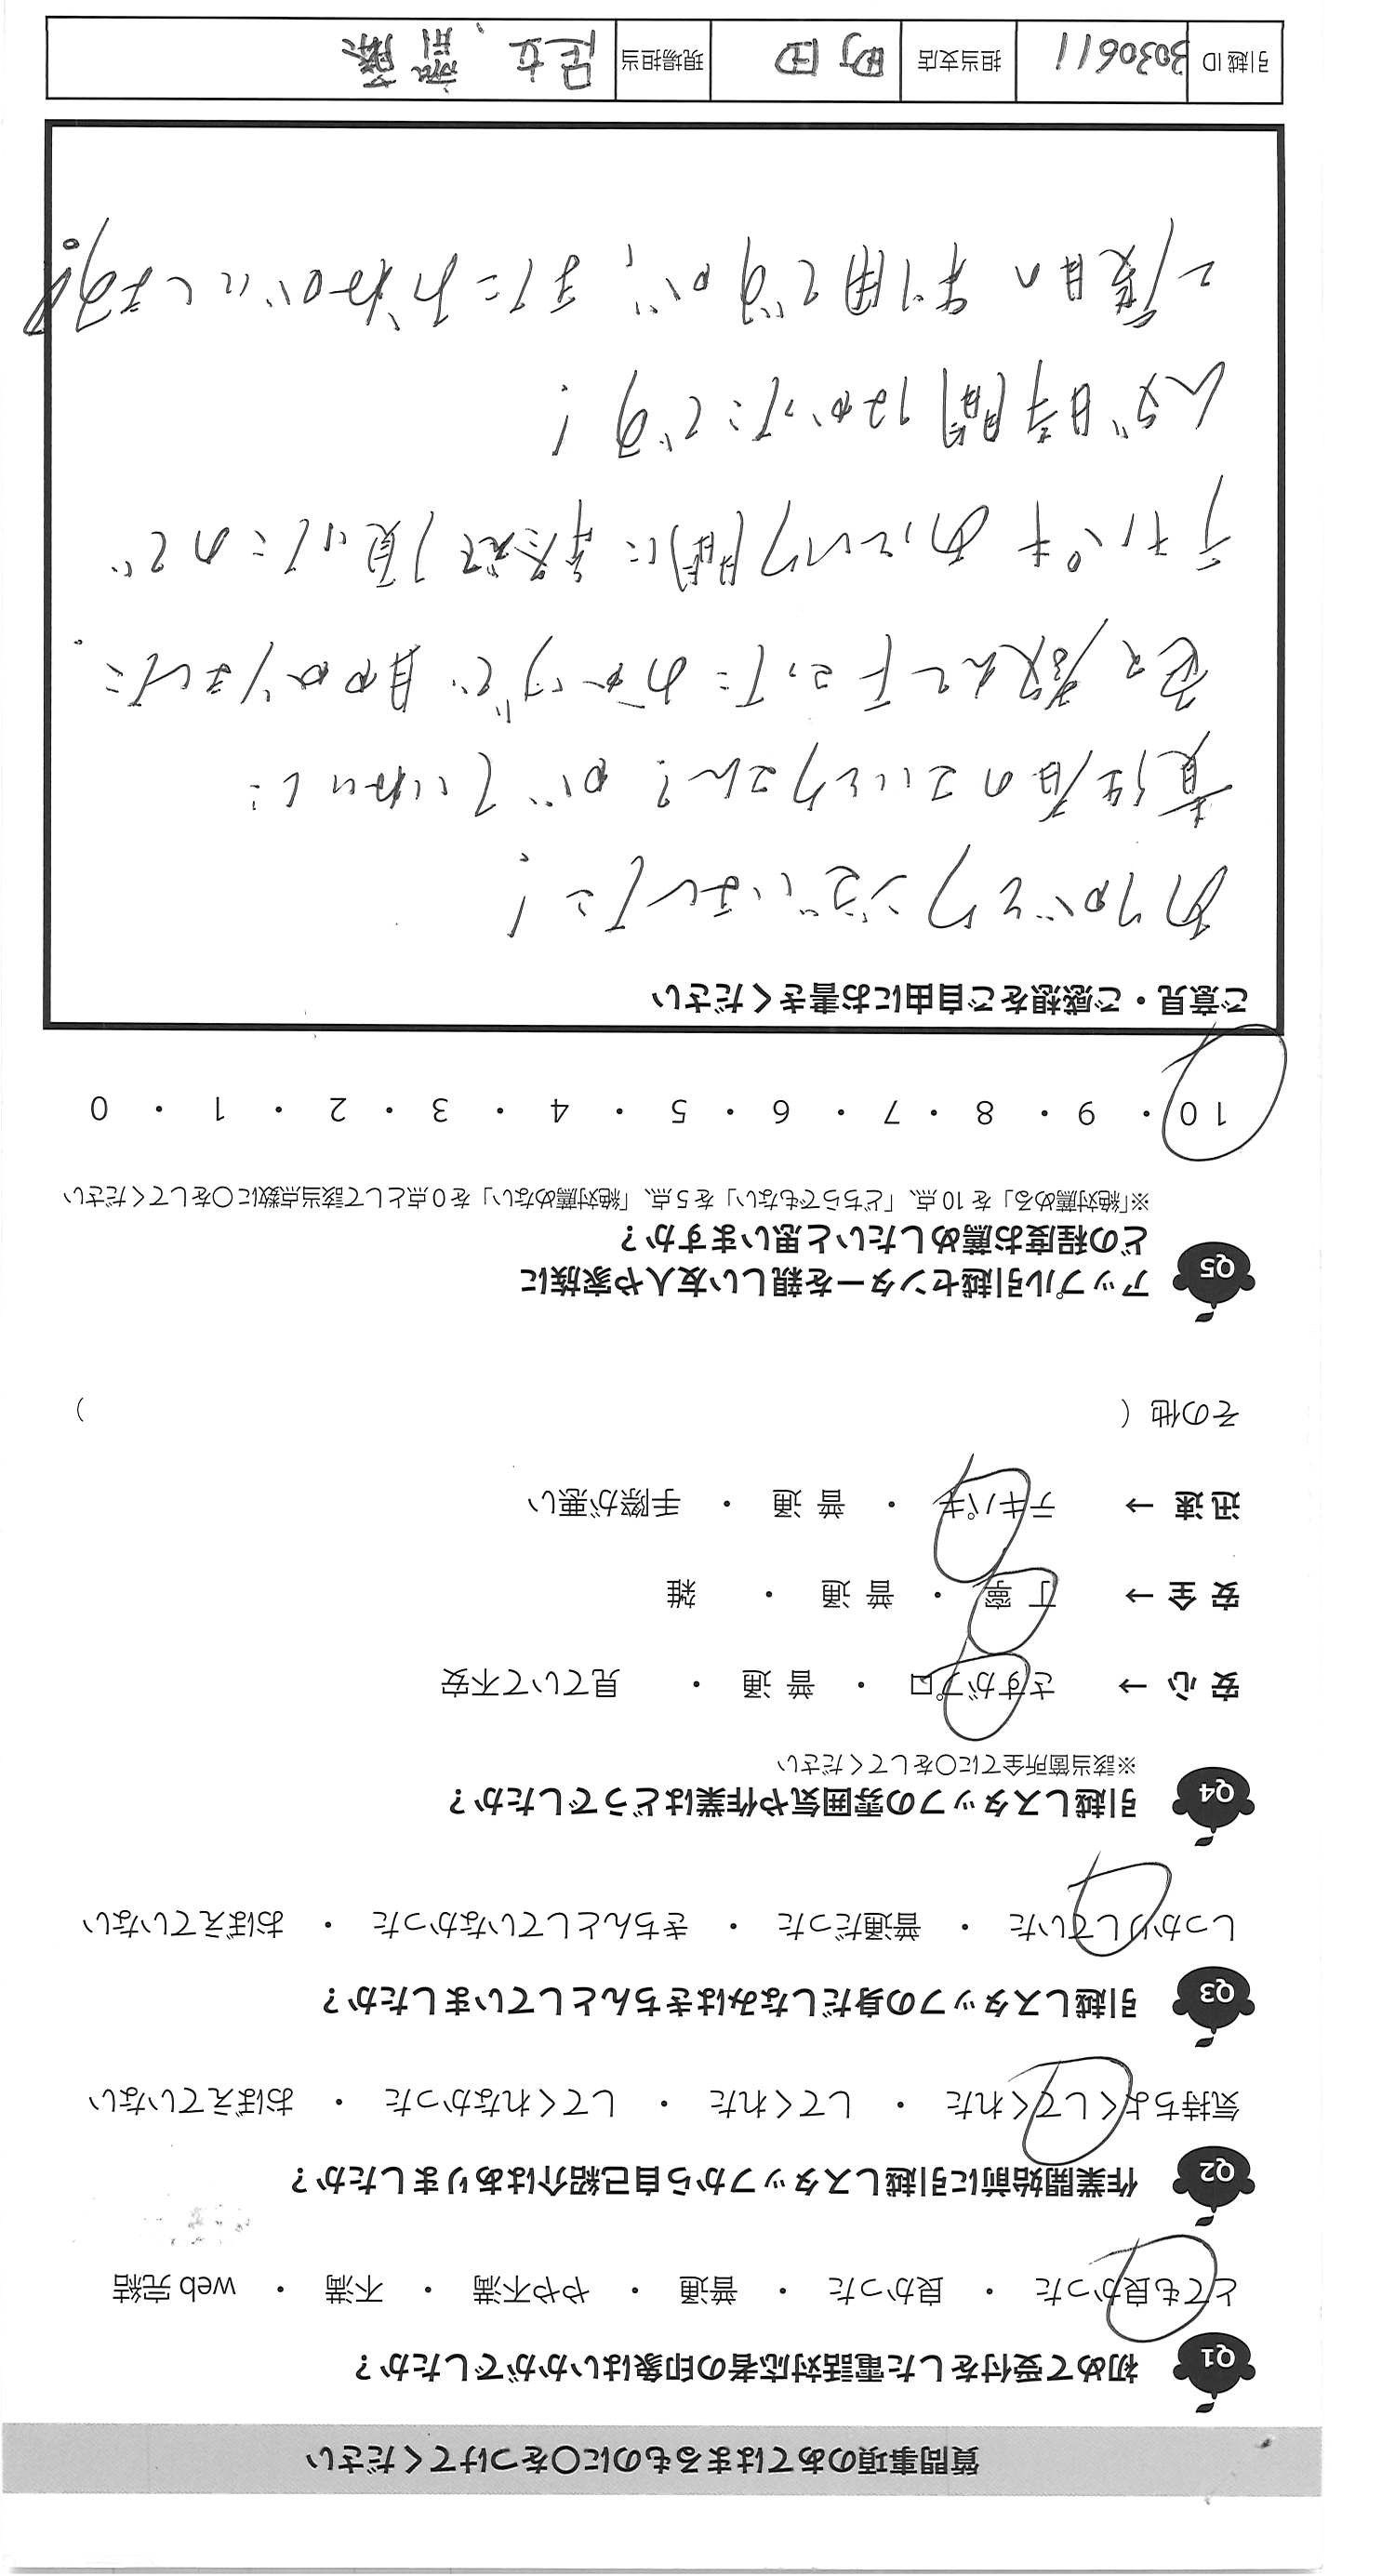 質問事項のあてはまるものに〇をつけてください
Q1 初めて受付をした電話対応者の印象はいかがでしたか？
とても良かった ・ 良かった ・ 普通 ・ やや不満 ・ 不満 ・ web 完結
Q2 作業開始前に引越しスタッフから自己紹介はありましたか？
気持ちよくしてくれた ・ してくれた ・ してくれなかった ・ おぼえていない
Q3 引越しスタッフの身だしなみはきちんとしていましたか？
しっかりしていた ・ 普通だった ・ きちんとしていなかった ・ おぼえていない
Q4 引越しスタッフの雰囲気や作業はどうでしたか？
※該当箇所全てに〇をしてください
安 心 → さすがプロ ・ 普 通 ・ 見ていて不安
安 全 → 丁 寧 ・ 普 通 ・ 雑
迅 速 → テキパキ ・ 普 通 ・ 手際が悪い
その他（ ）
Q5 アップル引越センターを親しい友人や家族に
どの程度お薦めしたいと思いますか？
※「絶対薦める」を 10 点、「どちらでもない」を 5 点、「絶対薦めない」を 0 点として該当点数に〇をしてください
10 ・ 9 ・ 8 ・ 7 ・ 6 ・ 5 ・ 4 ・ 3 ・ 2 ・ 1 ・ 0
ご意見・ご感想をご自由にお書きください
ありがとうございました！
責任者のさいとうさん？がていねいに
色々教えて下さったおかげで助かりました。
テキパキあっという間に終えて頂いたので
短時間ですみました！
二度目の利用ですが、またおねがいします。
引越 ID 3030611 担当支店 町田 現場担当 足立、齋藤